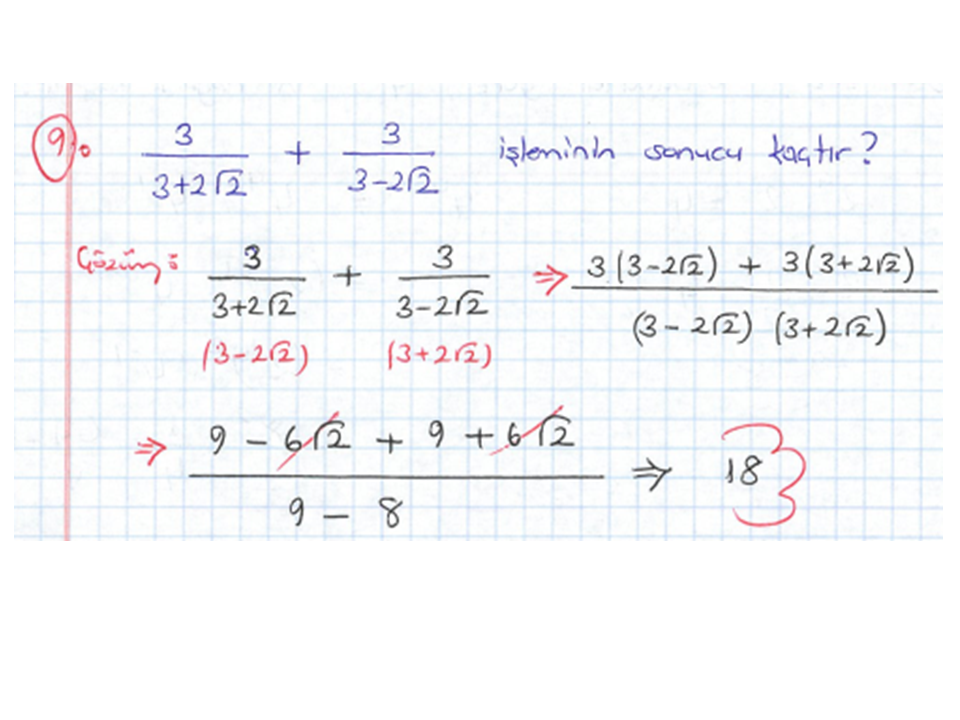 9. 3/(3+2√2) + 3/(3-2√2) işleminin sonucu kaçtır?
Çözüm: 3/(3+2√2) + 3/(3-2√2) ⇒ (3(3-2√2) + 3(3+2√2))/((3-2√2) (3+2√2))
(3-2√2) (3+2√2)
⇒ (9 - 6√2 + 9 + 6√2)/(9 - 8) ⇒ 18